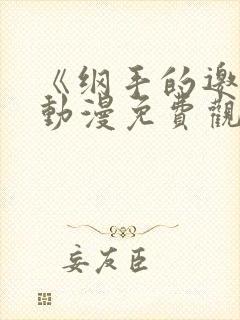 《纲手的邀
動漫免費觀
妄友臣